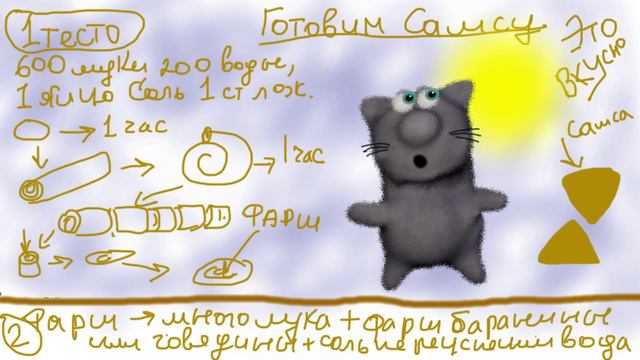 Готовим Самсу
1 тесто
600 муки 200 воды,
1 яйцо соль 1 ст лож.
→ 1 час
→ 1 час
ФАРШ
Это
Вкусно
Самса
2 Фарш → много лука + фарш баранины
или говядины + соль перец + вода